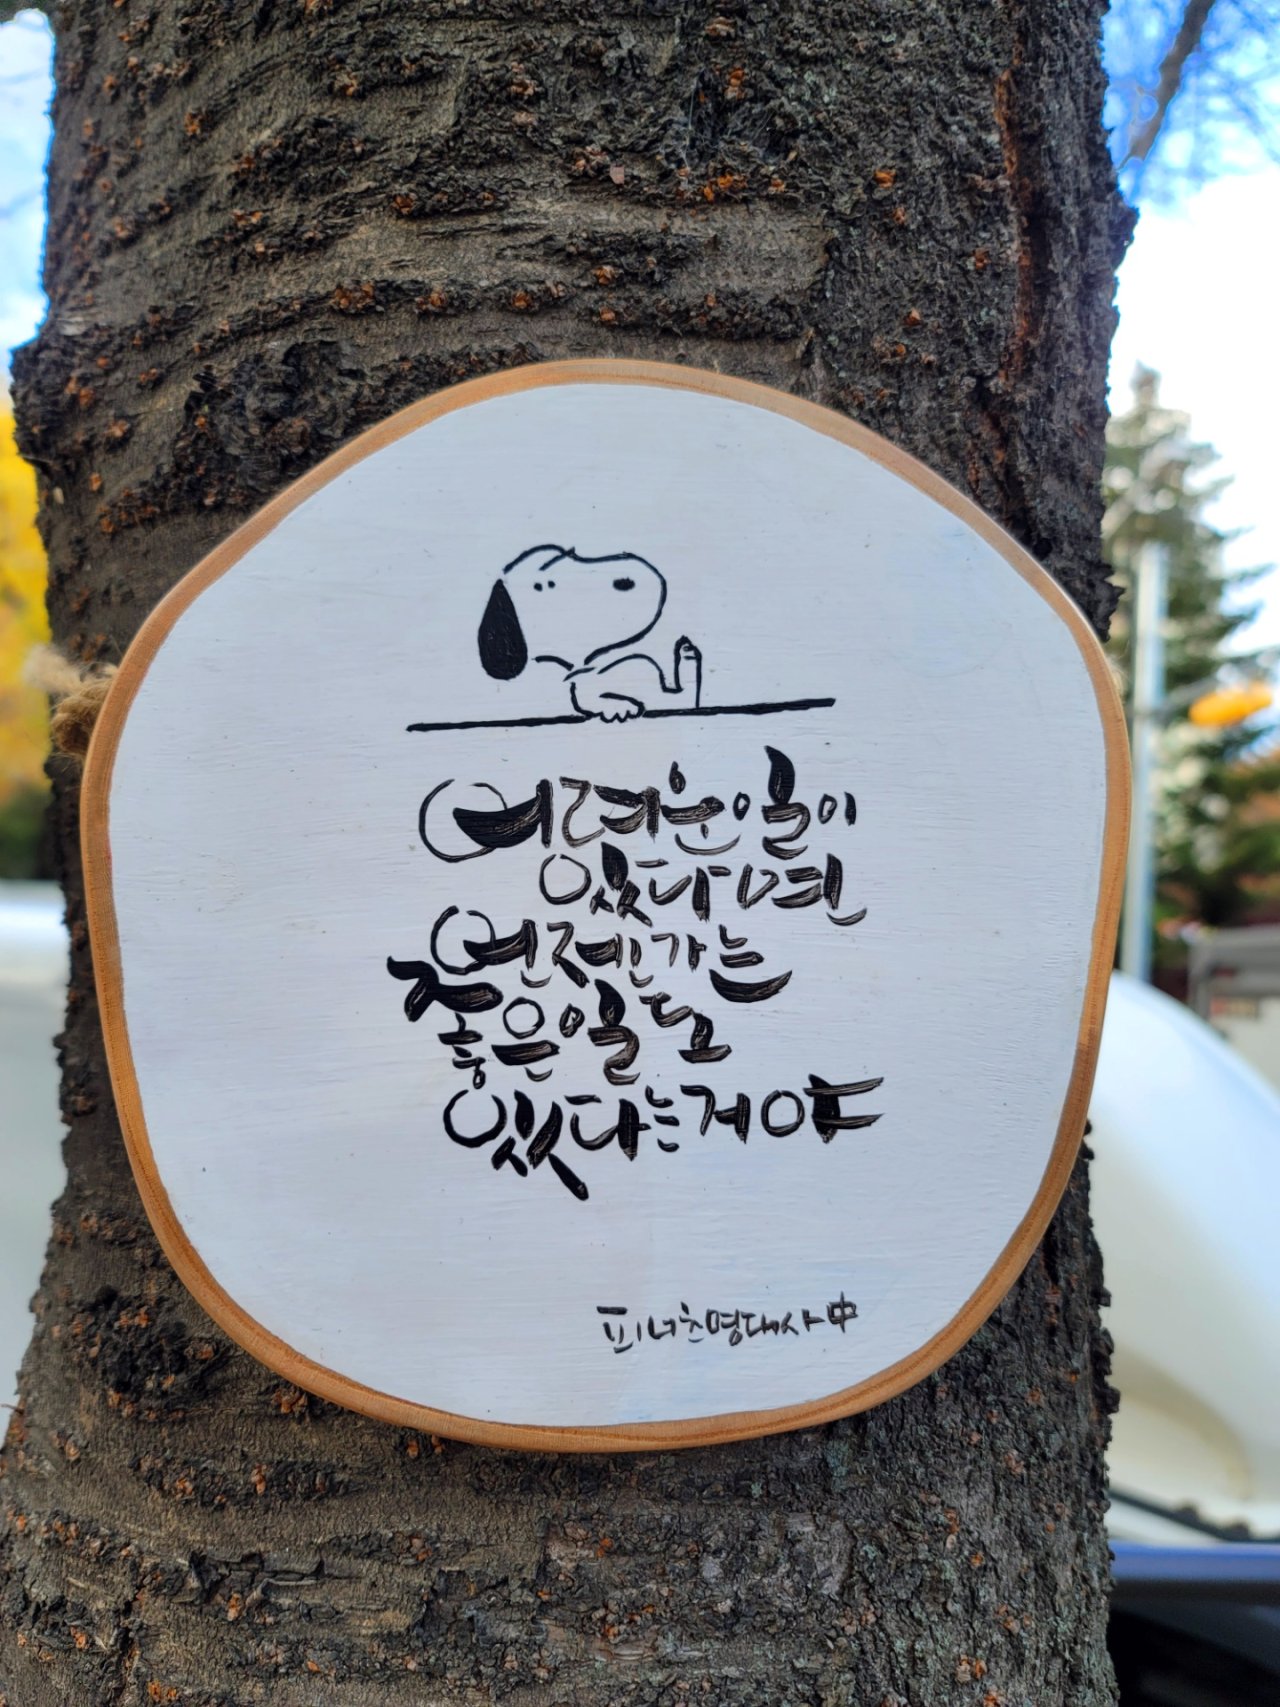 어려운 일이
있다면
언젠가는
좋은 일도
있다는거야
피너츠명대사中